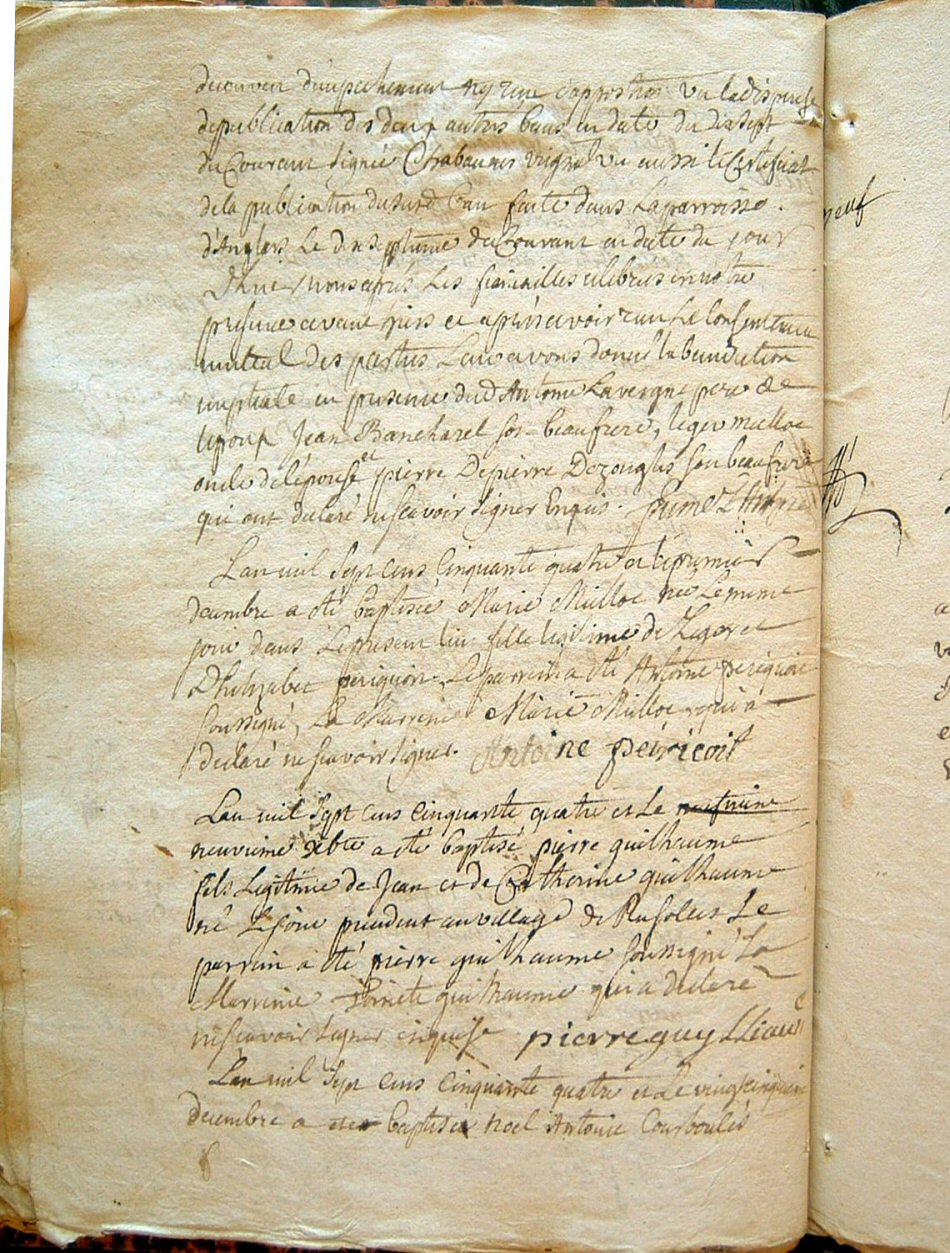 decouvert d'empechement ny opposition vu la dispense
de publication des deux autres bans en date du dix sept
du Courant signée Chabaunes vu aussi le Certificat
de la publication dususd ban faite dans La parroisse
d'Anglars Le dix septieme du Courant en date du jour
nous après Les fiancailles celebrées en notre
presence avant hiers et après avoir receu Le Consentement
mutuel des parties Leur avons donné la benediction
nuptiale en presence dud Antoine Lavergne pere de
lepoux Jean Bancharel son beaufrere, leger mulloc
oncle de l'épouse et pierre Depierre Dezouglis son beaufrere
qui ont declaré ne scavoir signer Enquis.
L'an mil sept cens Cinquante quatre et le premier
decembre a été baptisée Marie Mulloc née Le meme
jour dans Le present lieu fille legitime de Leger et
D'helizabet perigion Le parrein a été Antoine
soussigné, La Marreine Marie Mulloc qui a
declaré ne scavoir signer. Antoine peiricoit
L'an mil sept cens Cinquante quatre et Le
neuvieme xbre a été baptisé pierre guilhaume
fils Legitime de Jean et de Catherine guilhaume
né Le jour precedent au village de Le
parrein a été pierre guilhaume soussigné La
Marreine guilhaume qui a declaré
ne scavoir signer enquise pierre guy
L'an mil sept cens Cinquante quatre et Le vingt cinquieme
decembre a eté baptisé Noel Antoine Courboulès
neuf